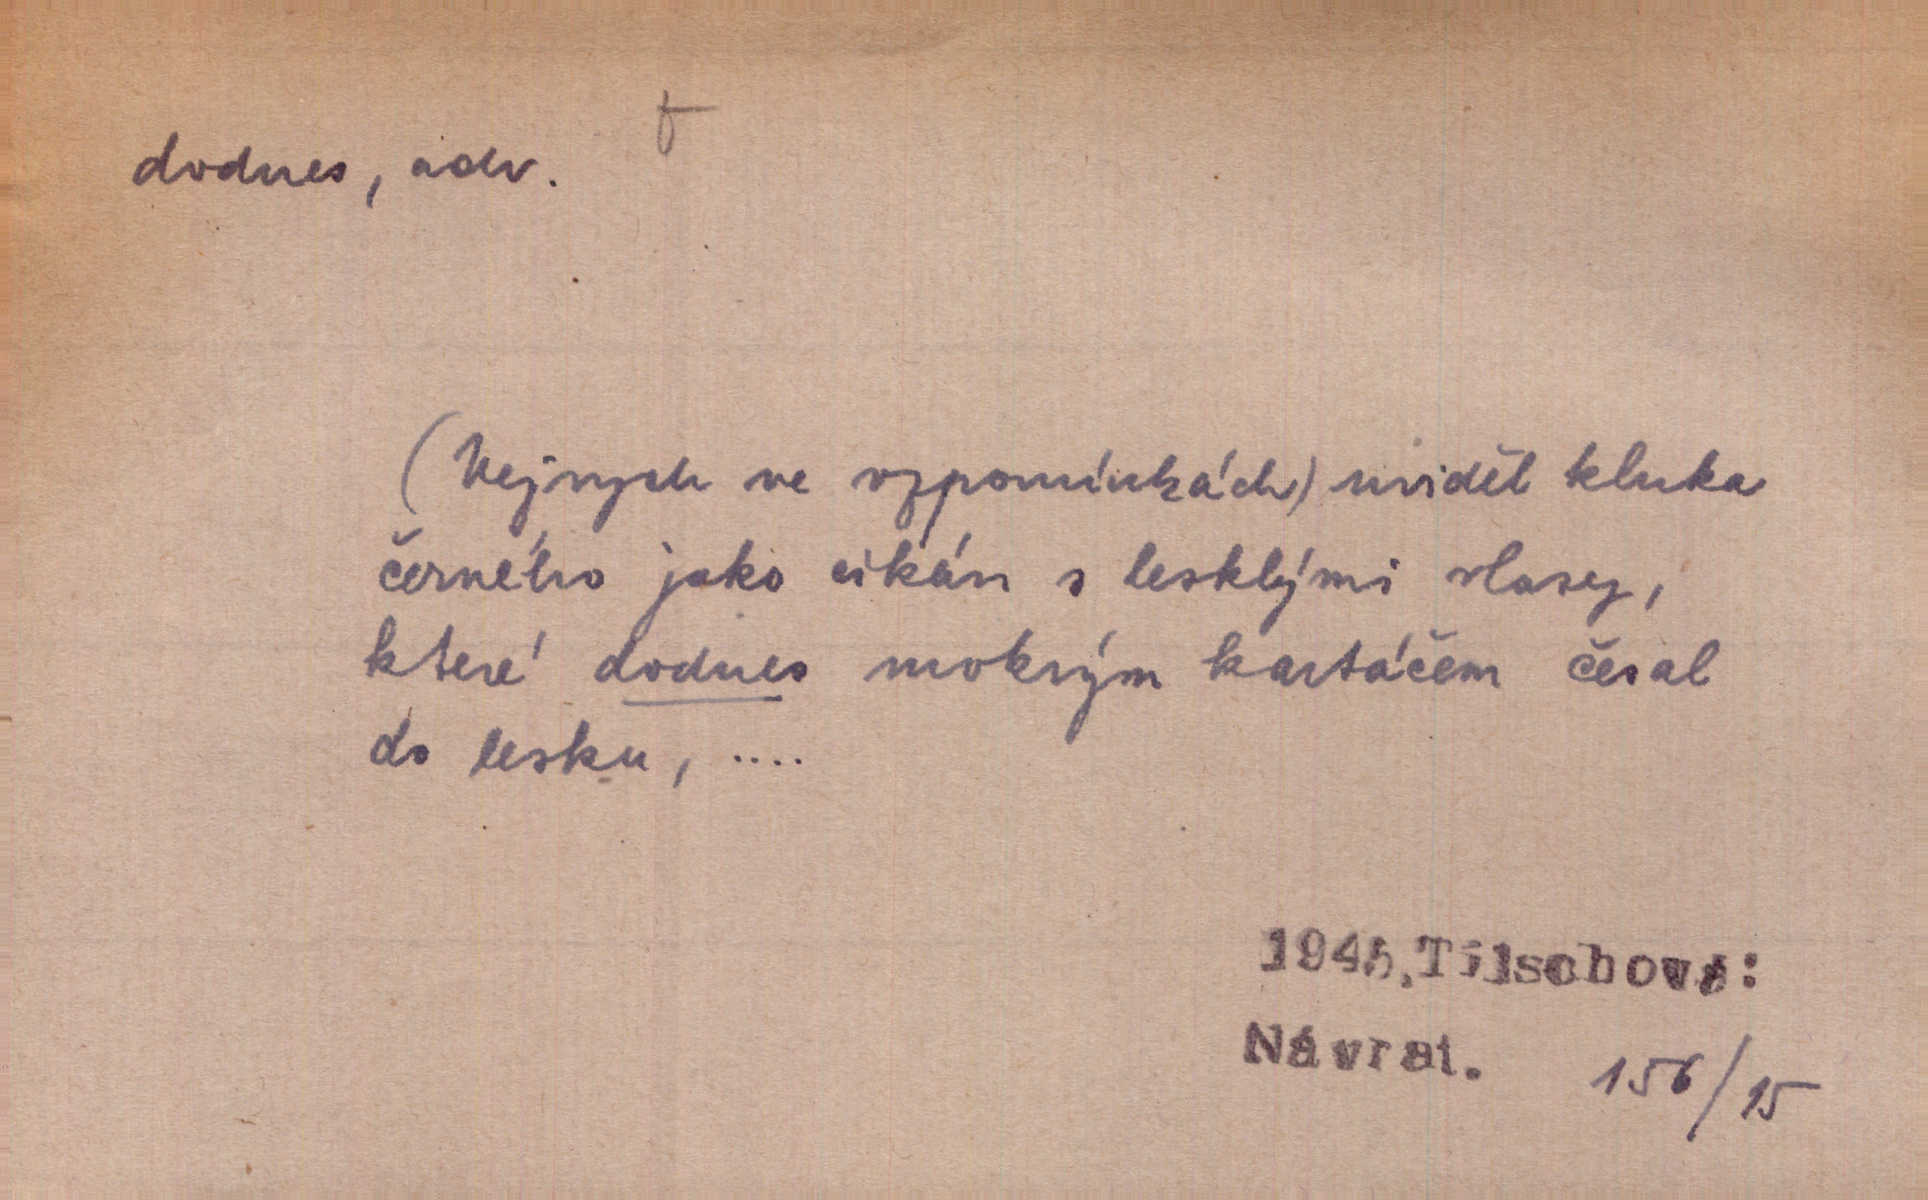 dodnes, adv.
(Nejvych ve vzpomínkách) uviděl kluka
černého jako cikán s lesklými vlasy,
které dodnes mokrým kartáčem česal
do lesku, ....
1945, Tilschová:
Návrat. 156/15